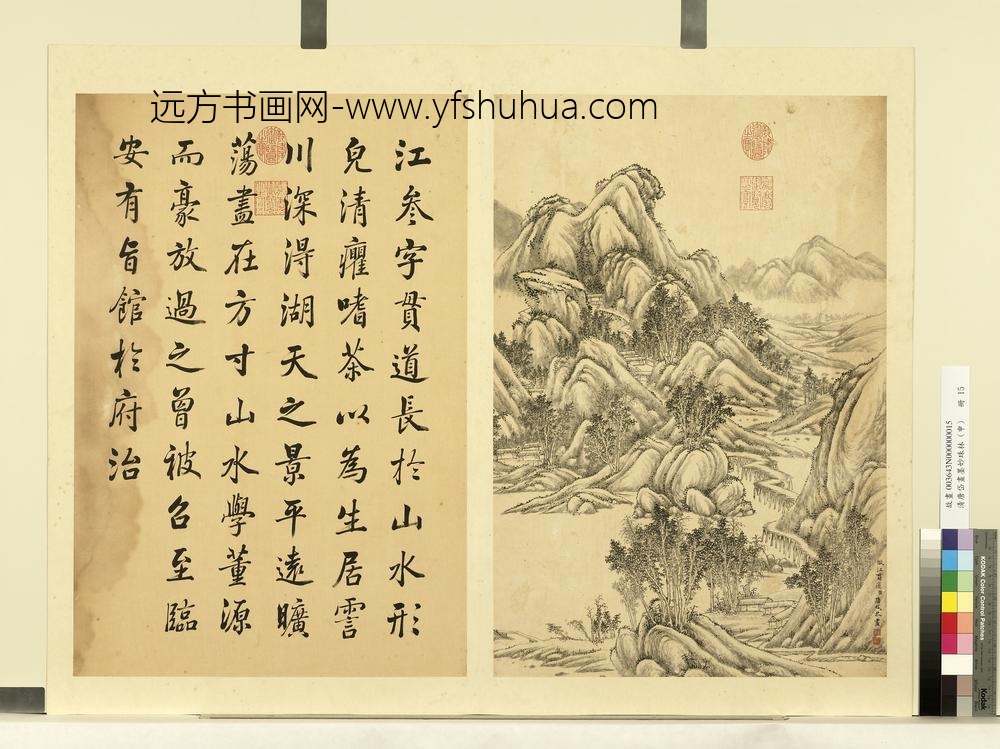 远方书画网-www.yfshuhua.com
江參字貫道長於山水形
皃清癯嗜茶以為生居霅
川深得湖天之景平遠曠
蕩盡在方寸山水學董源
而豪放過之曾被召至臨
安有旨館於府治
故畫003643N000000015
清唐岱畫墨妙珠林（申） 冊 15
KODAK Color Control Patches
Kodak